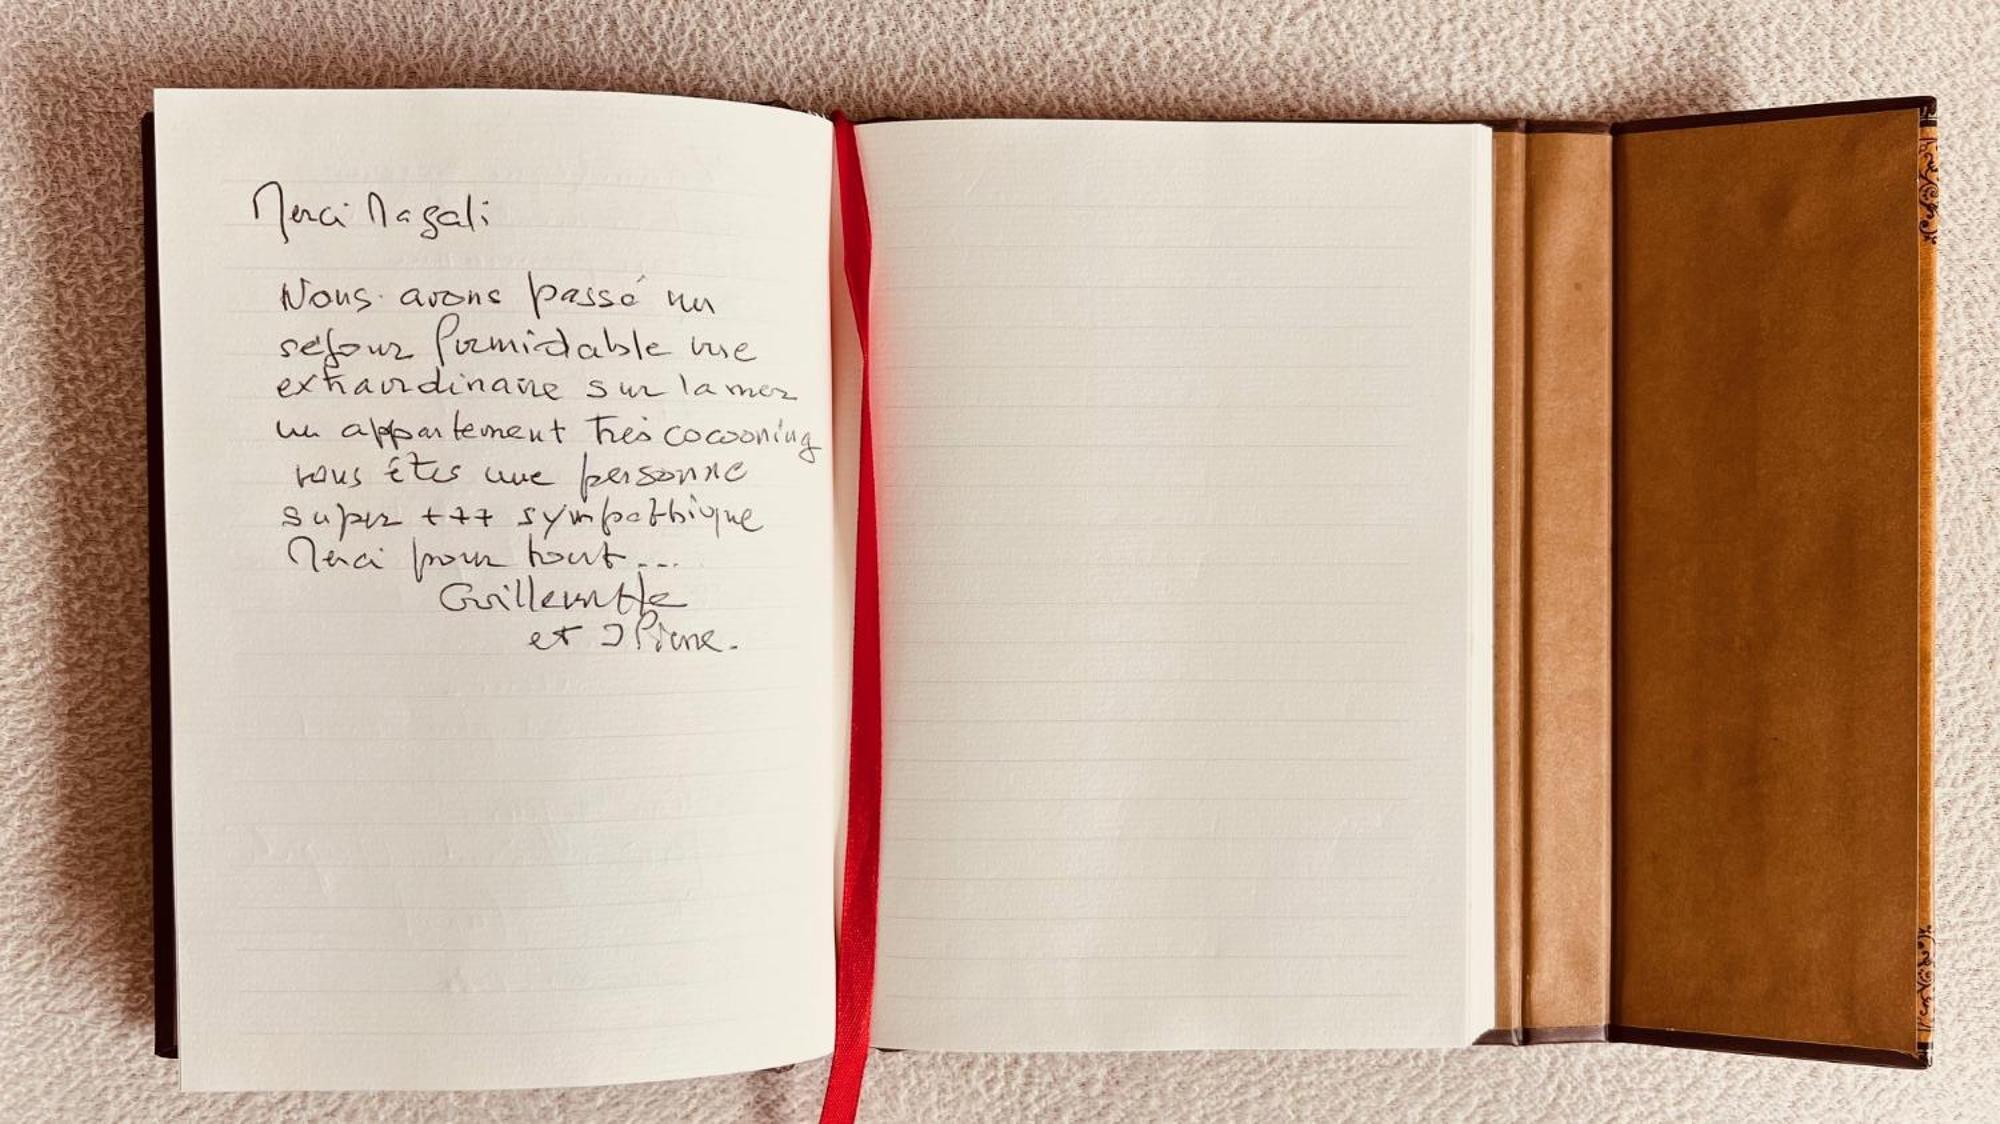 Merci Magali
Nous avons passé un
séjour formidable vue
extraordinaire sur la mer
un appartement très cocooning
vous êtes une personne
super +++ sympathique
Merci pour tout...
Guillemette
et J Pierre.